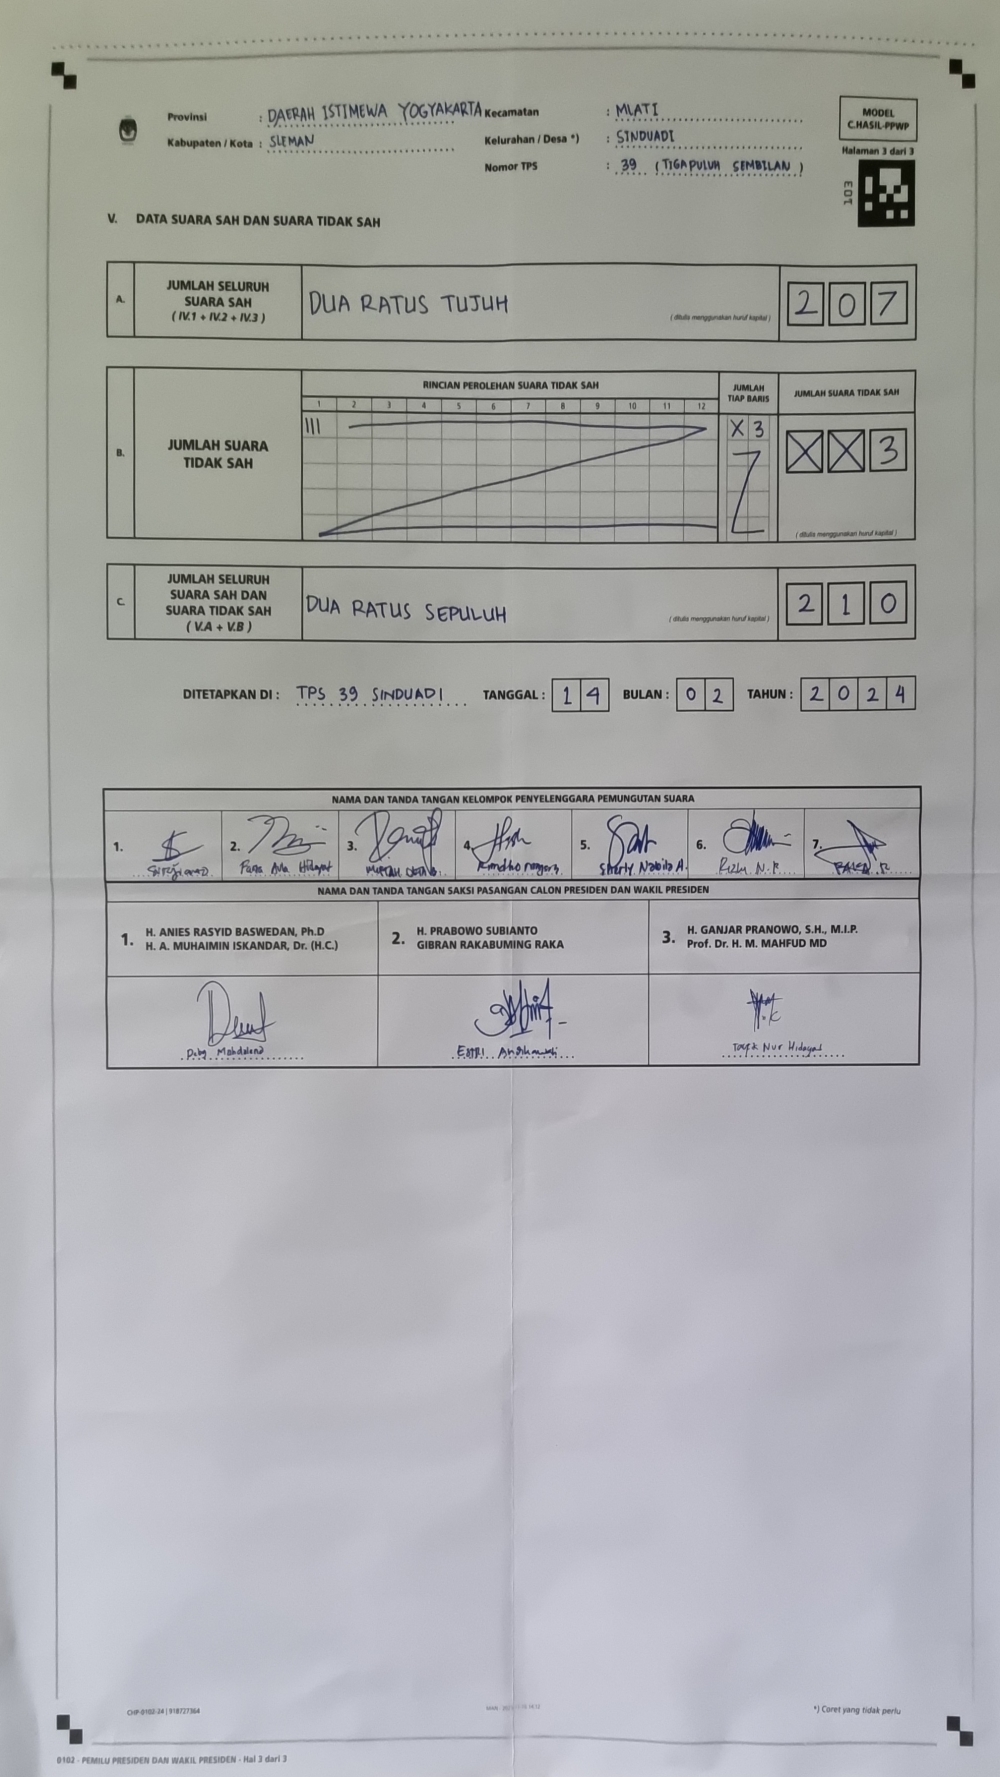 Provinsi : DAERAH ISTIMEWA YOGYAKARTA Kecamatan : MLATI
Kabupaten / Kota : SLEMAN Kelurahan / Desa *) : SINDUADI
Nomor TPS : 39 (TIGA PULUH SEMBILAN)
MODEL
C.HASIL-PPWP
Halaman 3 dari 3
103
V. DATA SUARA SAH DAN SUARA TIDAK SAH
A. JUMLAH SELURUH SUARA SAH ( IV.1 + IV.2 + IV.3 )
DUA RATUS TUJUH
( ditulis menggunakan huruf kapital )
2 0 7
B. JUMLAH SUARA TIDAK SAH
RINCIAN PEROLEHAN SUARA TIDAK SAH
1 2 3 4 5 6 7 8 9 10 11 12
III
JUMLAH TIAP BARIS
X 3
JUMLAH SUARA TIDAK SAH
X X 3
( ditulis menggunakan huruf kapital )
C. JUMLAH SELURUH SUARA SAH DAN SUARA TIDAK SAH ( V.A + V.B )
DUA RATUS SEPULUH
( ditulis menggunakan huruf kapital )
2 1 0
DITETAPKAN DI : TPS 39 SINDUADI TANGGAL : 1 4 BULAN : 0 2 TAHUN : 2 0 2 4
NAMA DAN TANDA TANGAN KELOMPOK PENYELENGGARA PEMUNGUTAN SUARA
1. 2. 3. 4. 5. 6. 7.
Hidayat
Nabila A.
N.P.
NAMA DAN TANDA TANGAN SAKSI PASANGAN CALON PRESIDEN DAN WAKIL PRESIDEN
1. H. ANIES RASYID BASWEDAN, Ph.D
H. A. MUHAIMIN ISKANDAR, Dr. (H.C.)
2. H. PRABOWO SUBIANTO
GIBRAN RAKABUMING RAKA
3. H. GANJAR PRANOWO, S.H., M.I.P.
Prof. Dr. H. M. MAHFUD MD
Nur Hidayat
CHP-0102-24 | 918727364
*) Coret yang tidak perlu
0102 - PEMILU PRESIDEN DAN WAKIL PRESIDEN - Hal 3 dari 3